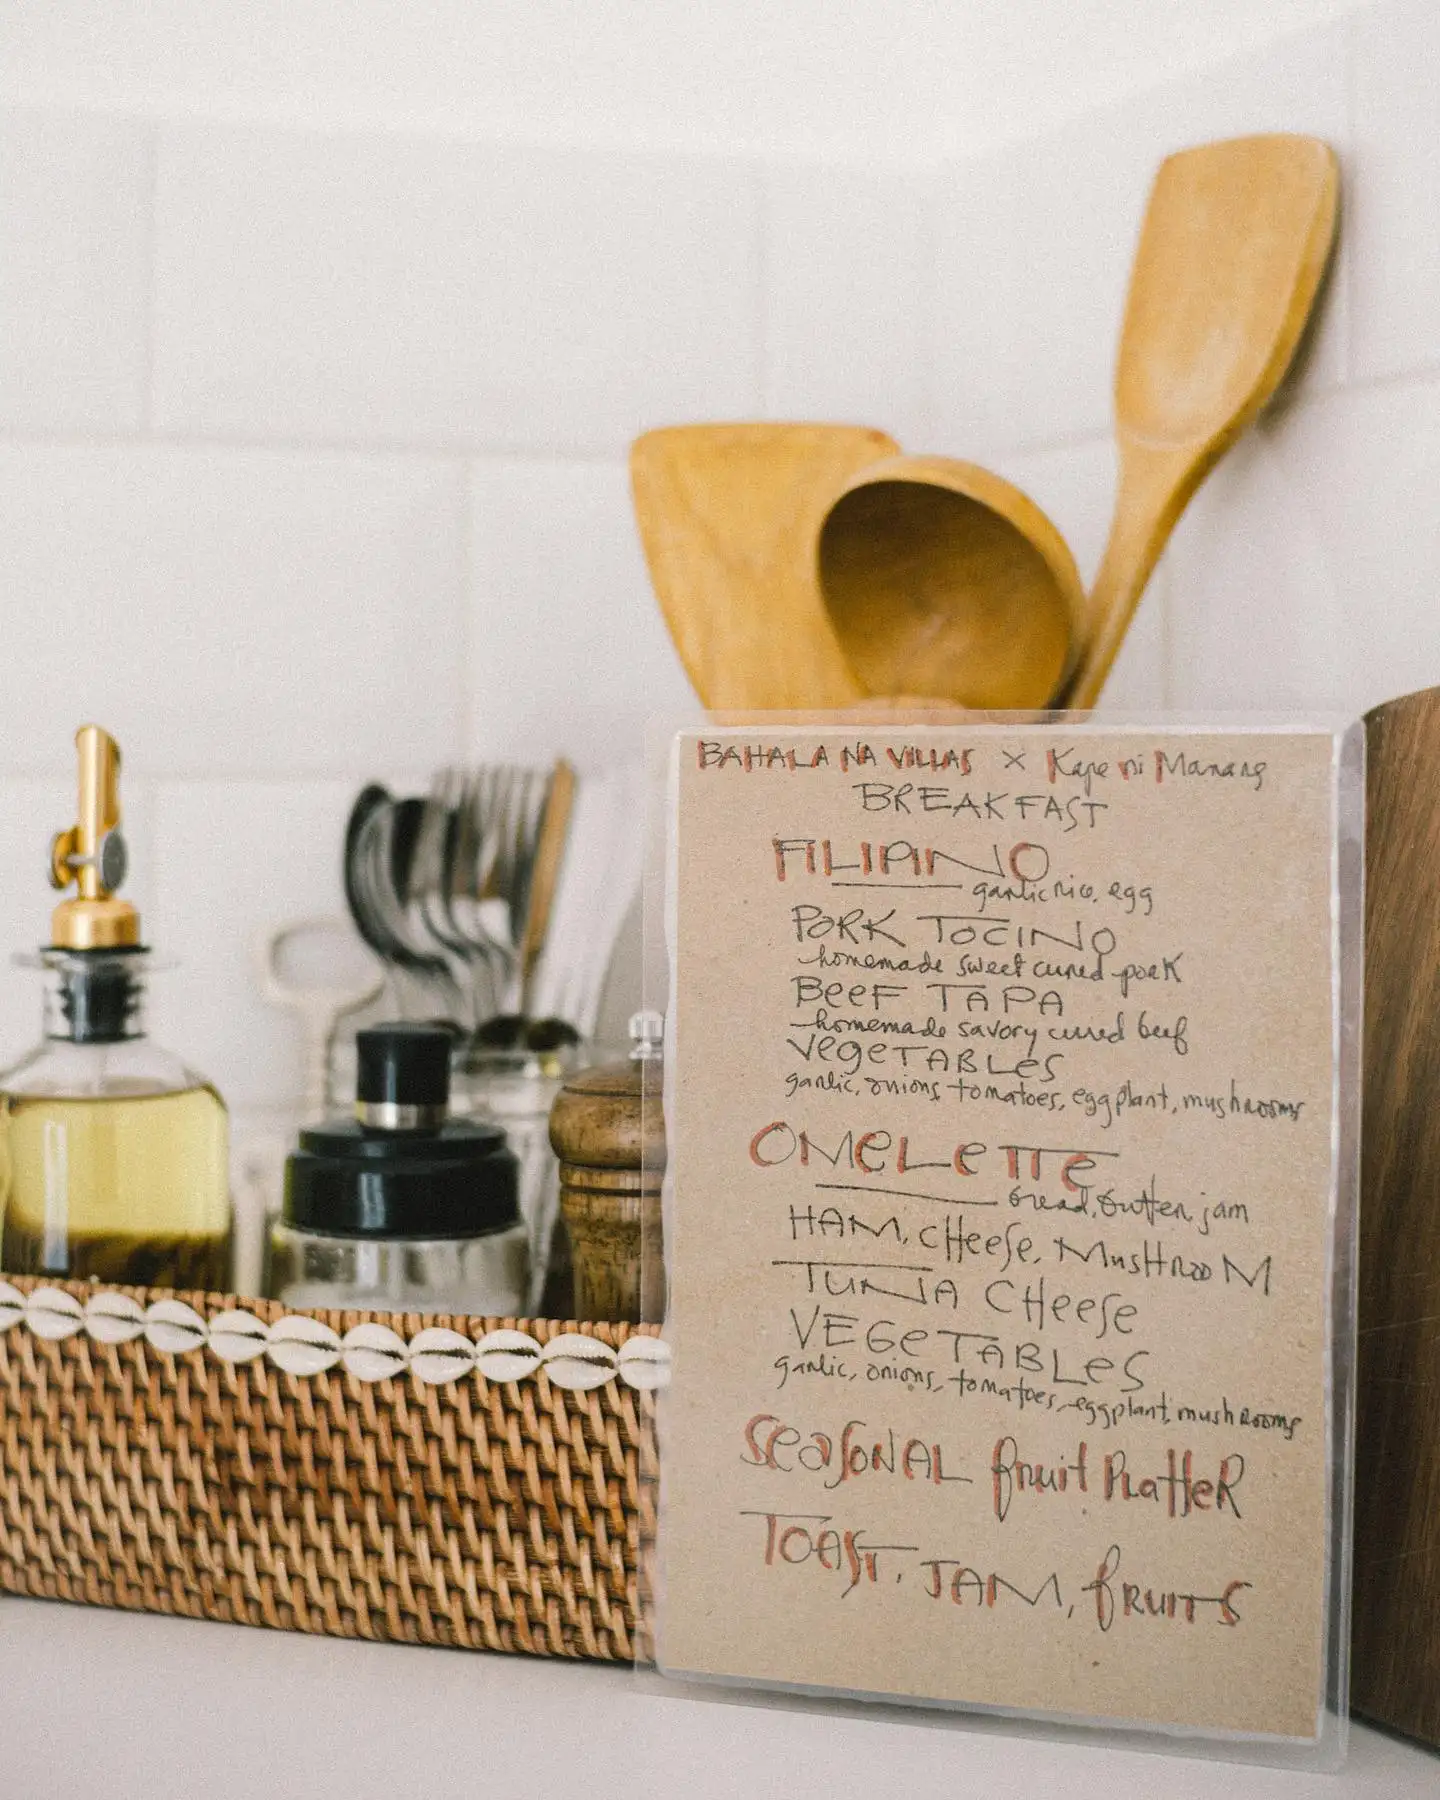 BAHALA NA VILLAS × Kape ni Manang
BREAKFAST
FILIPINO
garlic rice, egg
PORK TOCINO
homemade sweet cured pork
BEEF TAPA
homemade savory cured beef
VEGETABLES
garlic, onions, tomatoes, eggplant, mushrooms
OMELETTE
bread, butter, jam
HAM, CHEESE, MUSHROOM
TUNA CHEESE
VEGETABLES
garlic, onions, tomatoes, eggplant, mushrooms
SEASONAL fruit PLATTER
TOAST, JAM, fRUITS